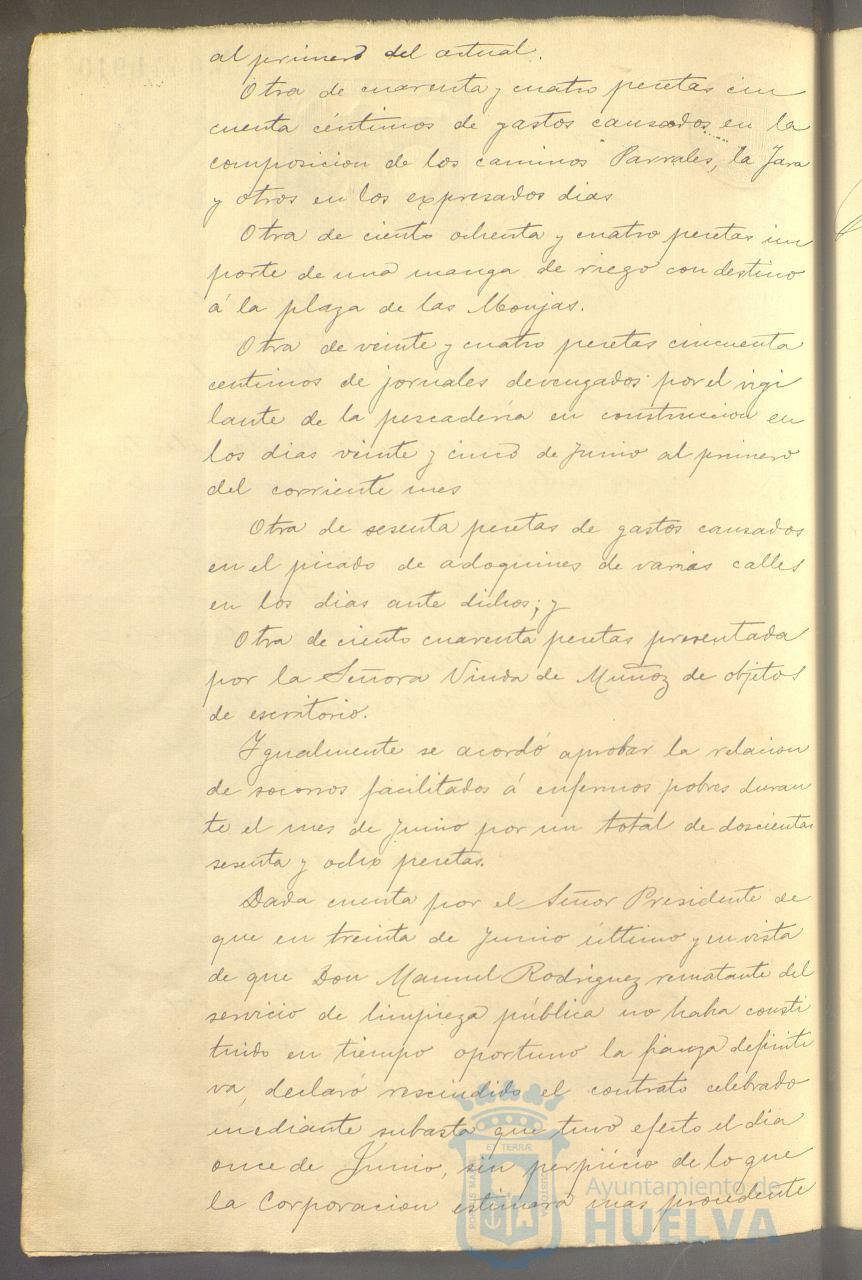 al primero del actual.
Otra de cuarenta y cuatro pesetas cin
cuenta céntimos de gastos causados en la
composicion de los caminos Parrales, la Jara
y otros en los expresados dias
Otra de ciento ochenta y cuatro pesetas im
porte de una manga de riego con destino
á la plaza de las Monjas.
Otra de veinte y cuatro pesetas cincuenta
centimos de jornales devengados por el vigi
lante de la pescadería en construccion en
los dias veinte y cinco de Junio al primero
del corriente mes
Otra de sesenta pesetas de gastos causados
en el picado de adoquines de varias calles
en los dias ante dichos; y
Otra de ciento cuarenta pesetas presentada
por la Señora Viuda de Muñoz de objetos
de escritorio.
Igualmente se acordó aprobar la relacion
de socorros facilitados á enfermos pobres duran
te el mes de Junio por un total de doscientas
sesenta y ocho pesetas.
Dada cuenta por el Señor Presidente de
que en treinta de Junio último y en vista
de que Don Manuel Rodriguez rematante del
servicio de limpieza pública no habia consti
tuido en tiempo oportuno la fianza definiti
va, declaró rescindido el contrato celebrado
mediante subasta que tuvo efecto el dia
once de Junio, sin perjuicio de lo que
la Corporacion estimara mas procedente
PORTUS MARIS ET TERRÆ CUSTODIA
Ayuntamiento de
HUELVA